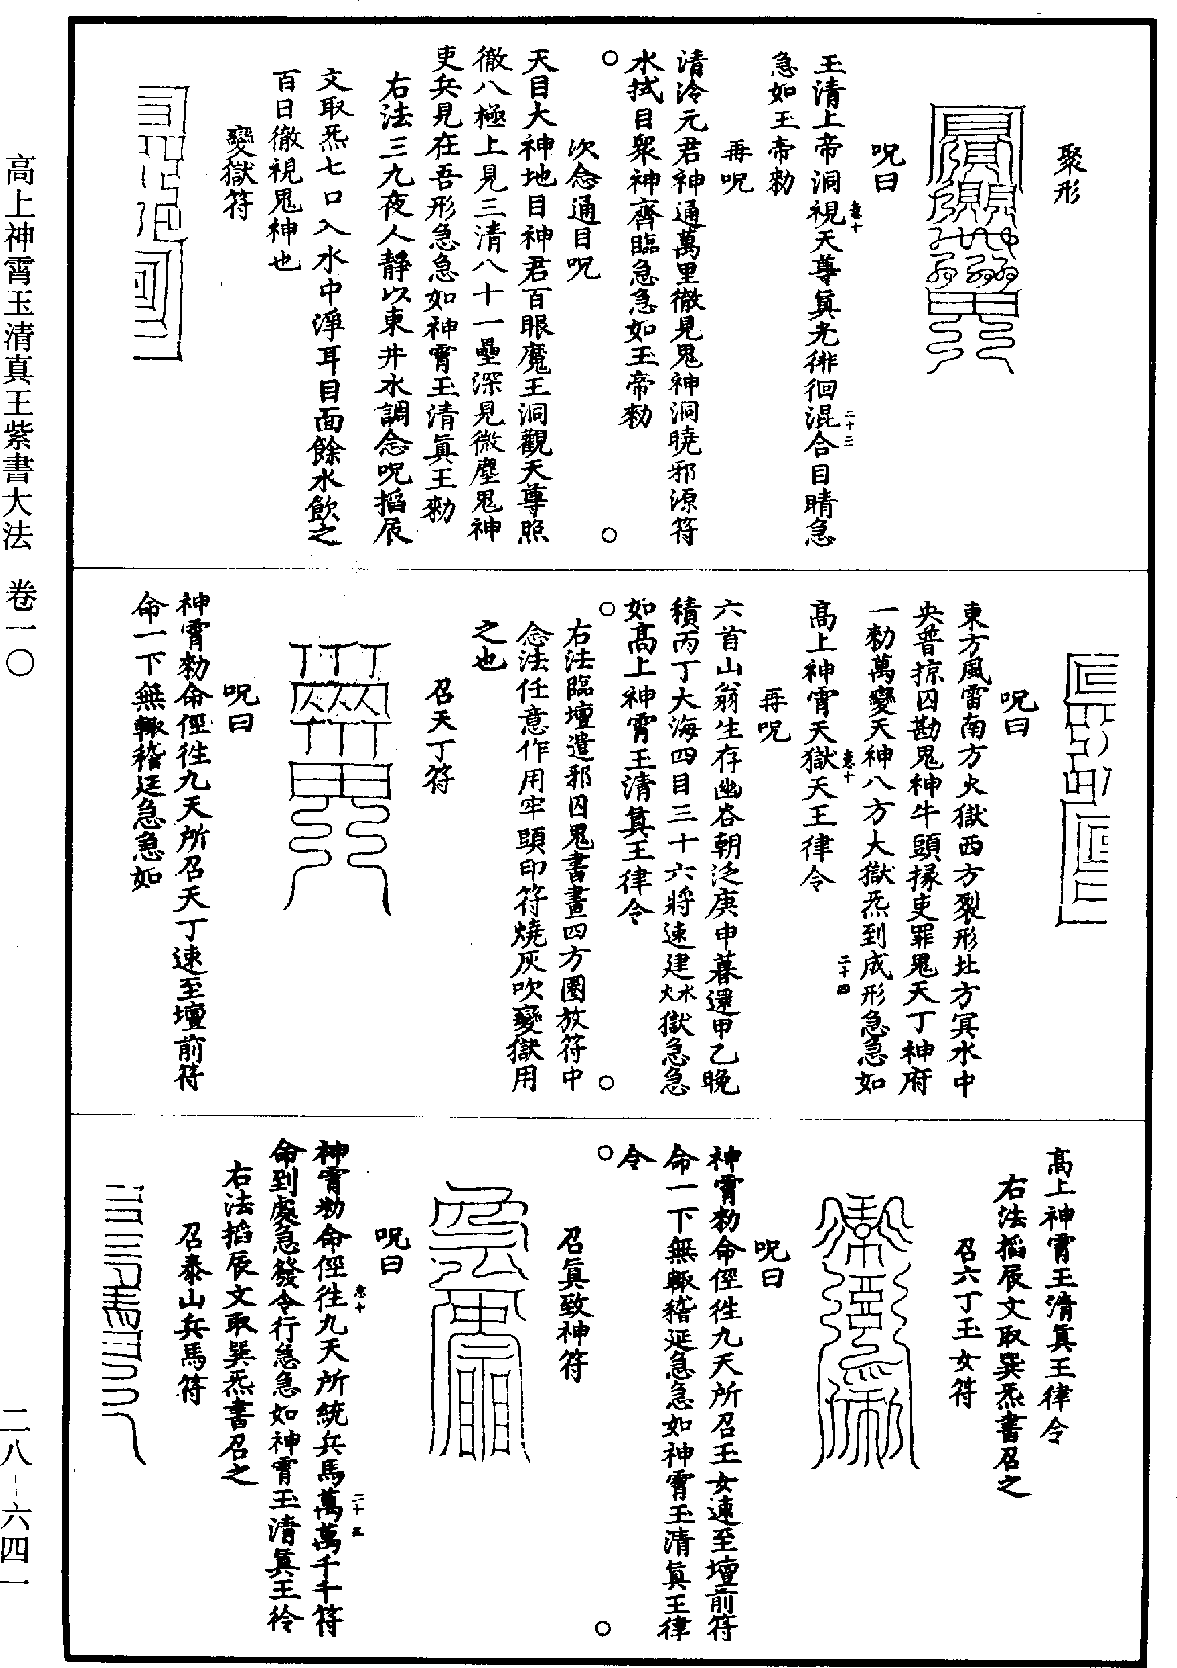 高上神霄玉清真王紫書大法　卷一〇
二八－六四一
聚形
呪曰
玉清上帝洞視天尊眞光徘徊混合目睛急
急如玉帝勑
再呪
清泠元君神通萬里徹見鬼神洞曉邪源符
水拭目衆神齊臨急急如玉帝勑
次念通目呪
天目大神地目神君百眼魔王洞觀天尊照
徹八極上見三清八十一壘深見微塵鬼神
吏兵見在吾形急急如神霄玉清眞王勑
右法三九夜人靜以東井水調念呪搯辰
文取炁七口入水中淨耳目面餘水飲之
百日徹視鬼神也
變獄符
呪曰
東方風雷南方火獄西方裂形北方冥水中
央普掠囚勘鬼神牛頭掾吏罪鬼天丁神府
一勑萬變天神八方大獄炁到成形急急如
高上神霄天獄天王律令
再呪
六首山翁生存幽谷朝泛庚申暮還甲乙晚
積丙丁大海四目三十六將速建水火獄急急
如高上神霄玉清眞王律令
右法臨壇遣邪囚鬼書畫四方圈放符中
念法任意作用牢頭印符燒灰吹變獄用
之也
召天丁符
呪曰
神霄勑命徑往九天所召天丁速至壇前符
命一下無輙稽廷急急如
高上神霄玉清眞王律令
右法搯辰文取巽炁書召之
召六丁玉女符
呪曰
神霄勑命徑往九天所召玉女速至壇前符
命一下無輙稽延急急如神霄玉清眞王律
令
召眞致神符
呪曰
神霄勑命徑往九天所統兵馬萬萬千千符
命到處急發令行急急如神霄玉清眞王衿
右法搯辰文取巽炁書召之
召泰山兵馬符
卷十
二十三
卷十
二十四
卷十
二十五